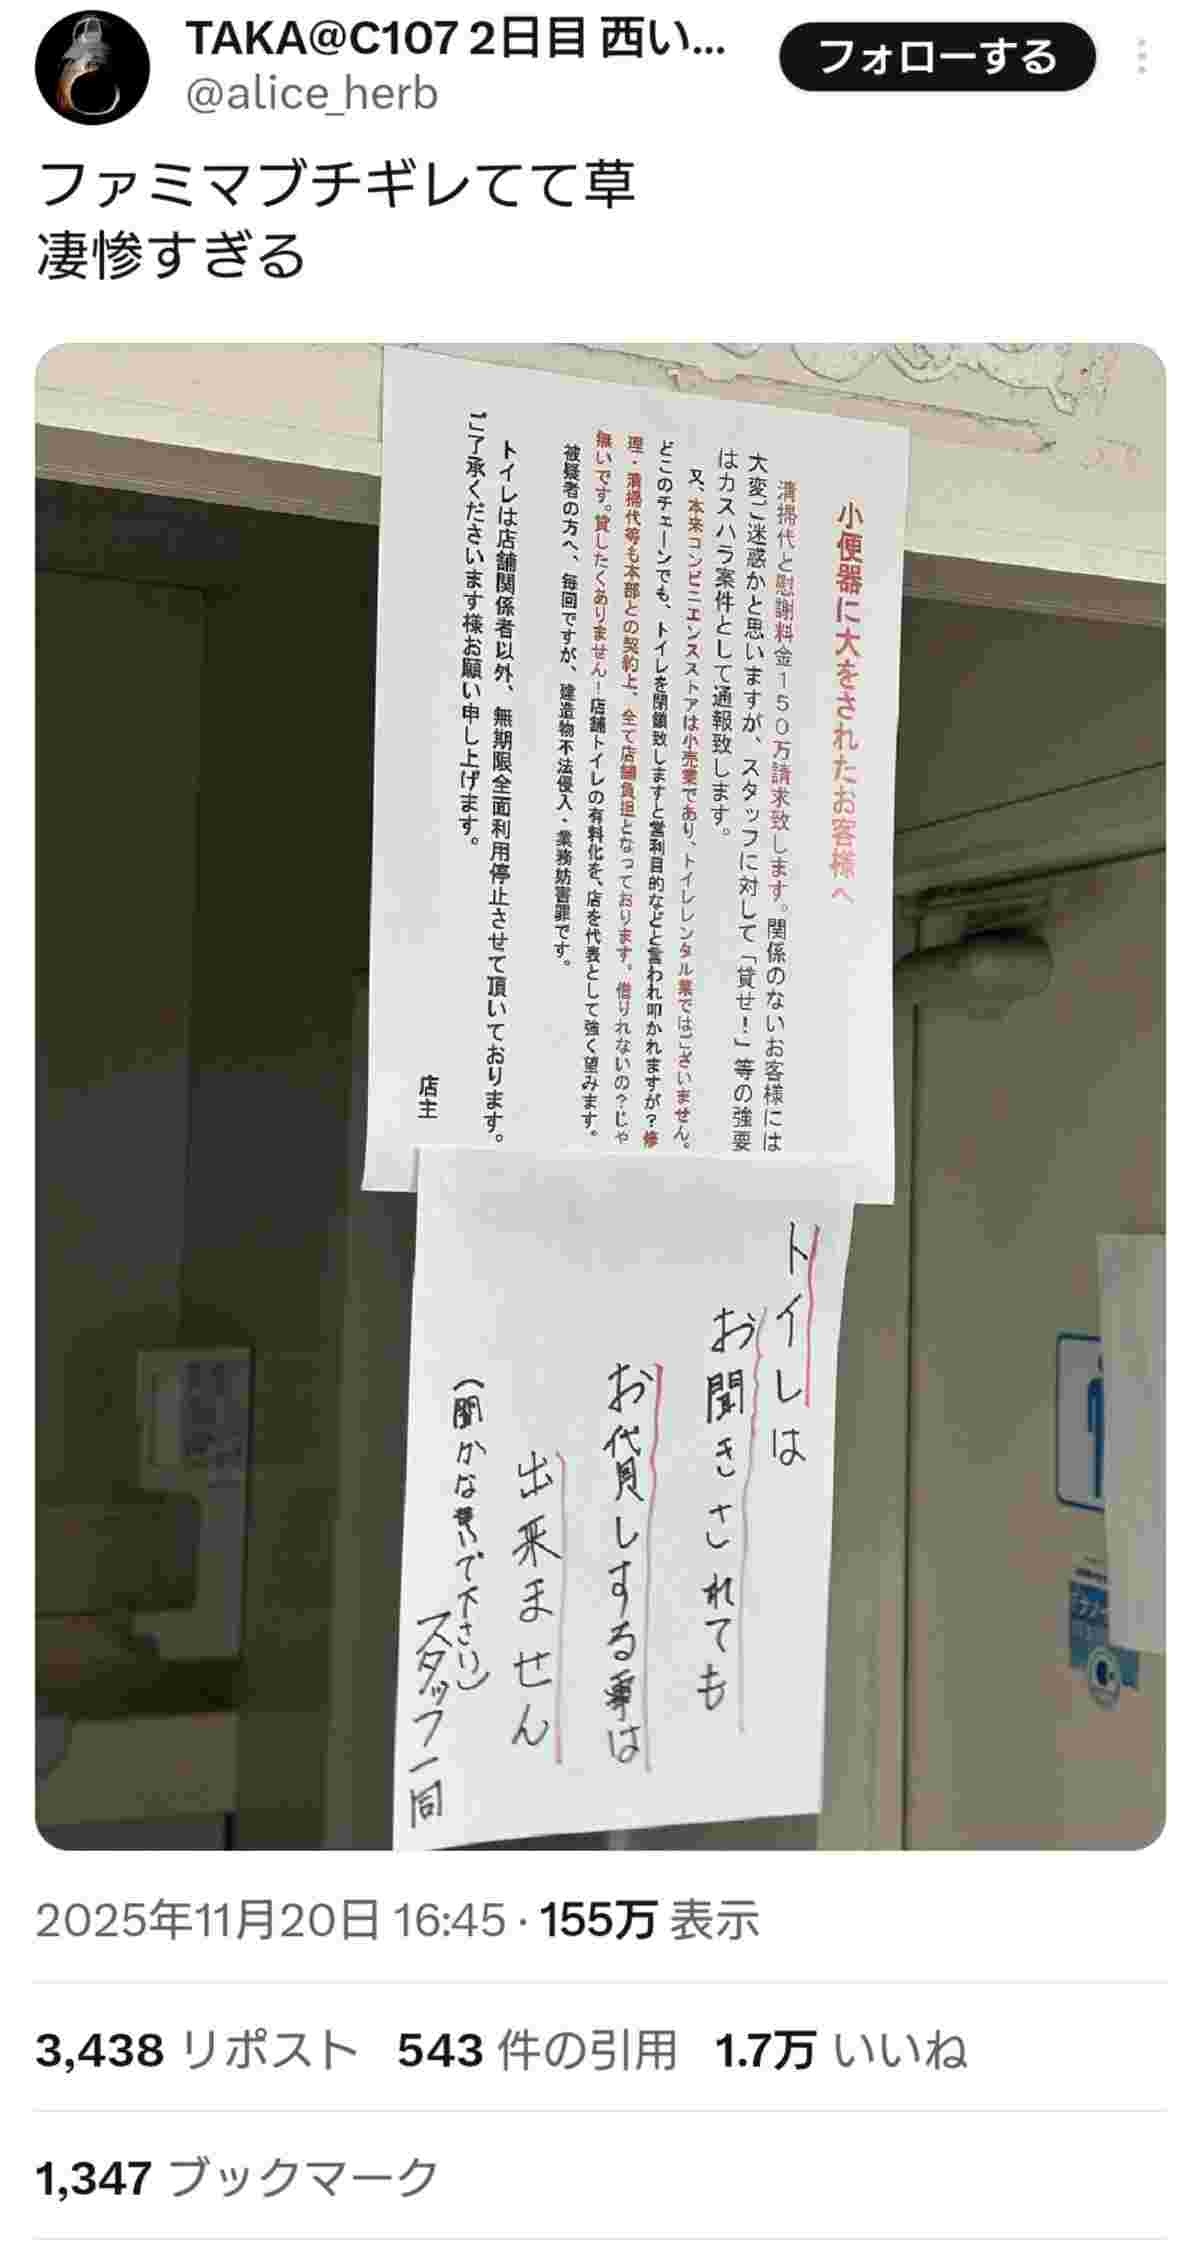 TAKA@C107 2日目 西い...
フォローする
@alice_herb
ファミマブチギレてて草
凄惨すぎる
小便器に大をされたお客様へ
清掃代と慰謝料金150万請求致します。関係のないお客様には
大変ご迷惑かと思いますが、スタッフに対して「貸せ!」等の強要
はカスハラ案件として通報致します。
又、本来コンビニエンスストアは小売業であり、トイレレンタル業ではございません。
どこのチェーンでも、トイレを閉鎖致しますと営利目的などと言われ叩かれますが?修
理・清掃代等も本部との契約上、全て店舗負担となっております。借りれないの?じゃ
無いです。貸したくありません!店舗トイレの有料化を、店を代表として強く望みます。
被疑者の方へ、毎回ですが、建造物不法侵入・業務妨害罪です。
トイレは店舗関係者以外、無期限全面利用停止させて頂いております。
ご了承くださいます様お願い申し上げます。
店主
トイレは
お聞きされても
お貸しする事は
出来ません
(聞かないで下さい)
スタッフ一同
2025年11月20日 16:45 · 155万 表示
3,438 リポスト 543 件の引用 1.7万 いいね
1,347 ブックマーク